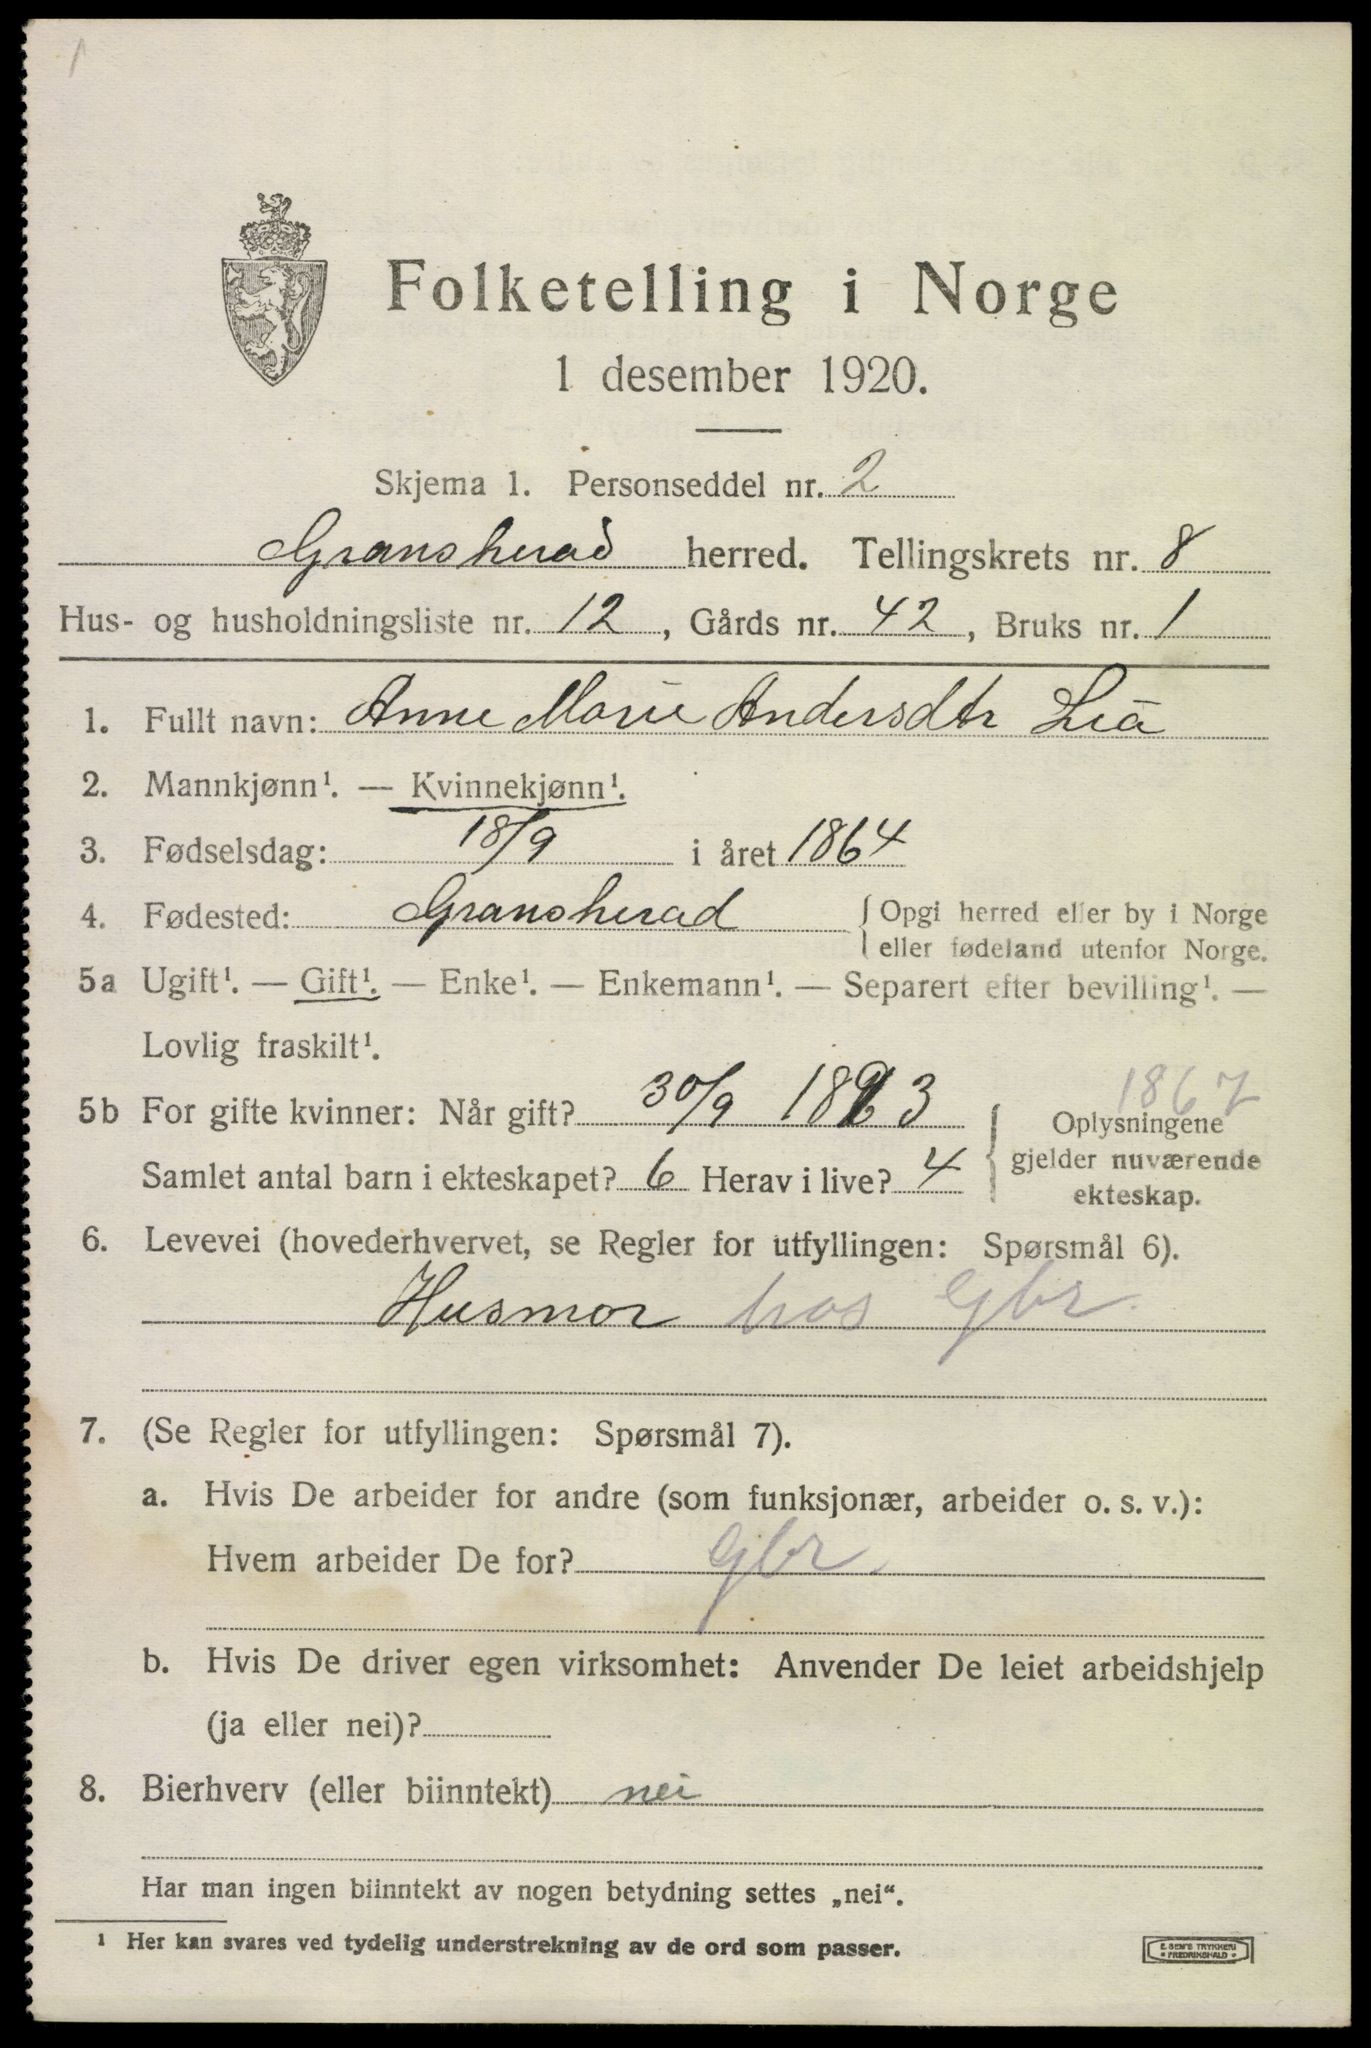 Folketelling i Norge
1 desember 1920.
Skjema 1. Personseddel nr. 2
Gransherad herred. Tellingskrets nr. 8
Hus- og husholdningsliste nr. 12, Gårds nr. 42, Bruks nr. 1
1. Fullt navn: Anne Marie Andersdtr Liå
2. Mannkjønn¹. — Kvinnekjønn¹.
3. Fødselsdag: 18/9 i året 1864
4. Fødested: Gransherad { Opgi herred eller by i Norge
eller fødeland utenfor Norge.
5a Ugift¹. — Gift¹. — Enke¹. — Enkemann¹. — Separert efter bevilling¹. —
Lovlig fraskilt¹.
1867
5b For gifte kvinner: Når gift? 30/9 1893 { Oplysningene
gjelder nuværende
ekteskap.
Samlet antal barn i ekteskapet? 6 Herav i live? 4
6. Levevei (hovederhvervet, se Regler for utfyllingen: Spørsmål 6).
Husmor hos Gbr.
7. (Se Regler for utfyllingen: Spørsmål 7).
a. Hvis De arbeider for andre (som funksjonær, arbeider o. s. v.):
Hvem arbeider De for? Gbr.
b. Hvis De driver egen virksomhet: Anvender De leiet arbeidshjelp
(ja eller nei)?
8. Bierhverv (eller biinntekt) nei
Har man ingen biinntekt av nogen betydning settes „nei“.
¹ Her kan svares ved tydelig understrekning av de ord som passer.
E. SEM'S TRYKKERI
• FREDRIKSHALD •